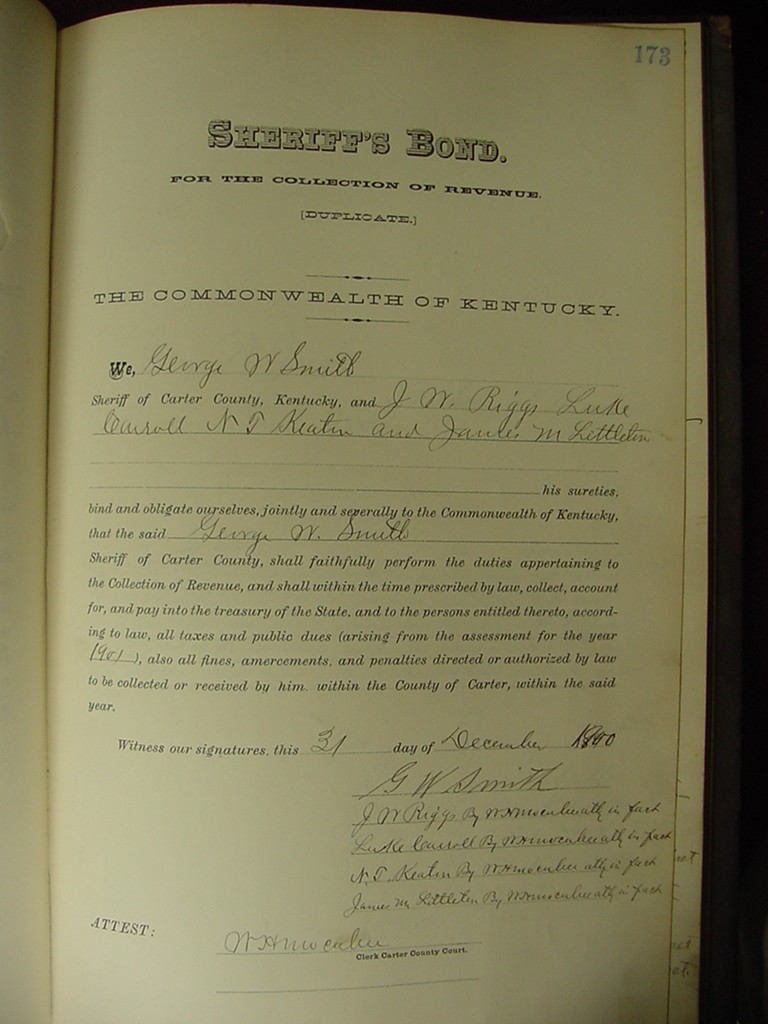 173
SHERIFF'S BOND.
FOR THE COLLECTION OF REVENUE.
[DUPLICATE.]
THE COMMONWEALTH OF KENTUCKY.
We, George W Smith
Sheriff of Carter County, Kentucky, and J W. Riggs Luke
Carroll N T Keaton and James M Littleton
his sureties,
bind and obligate ourselves, jointly and severally to the Commonwealth of Kentucky,
that the said George W. Smith
Sheriff of Carter County, shall faithfully perform the duties appertaining to
the Collection of Revenue, and shall within the time prescribed by law, collect, account
for, and pay into the treasury of the State, and to the persons entitled thereto, accord-
ing to law, all taxes and public dues (arising from the assessment for the year
1901), also all fines, amercements, and penalties directed or authorized by law
to be collected or received by him, within the County of Carter, within the said
year.
Witness our signatures, this 31 day of December
G W Smith
J W Riggs By atty in fact
Luke Carroll By atty in fact
N. T. Keaton By atty in fact
James M Littleton By atty in fact
ATTEST:
Clerk Carter County Court.